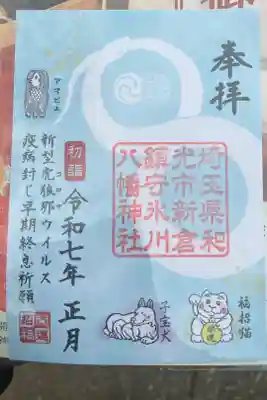 奉拝
埼玉県和
光市新倉
鎮守氷川
八幡神社
福招猫
子宝犬
初詣
令和七年 正月
アマビエ
新型虎狼那ウイルス
コロナ
疫病封じ早期終息祈願